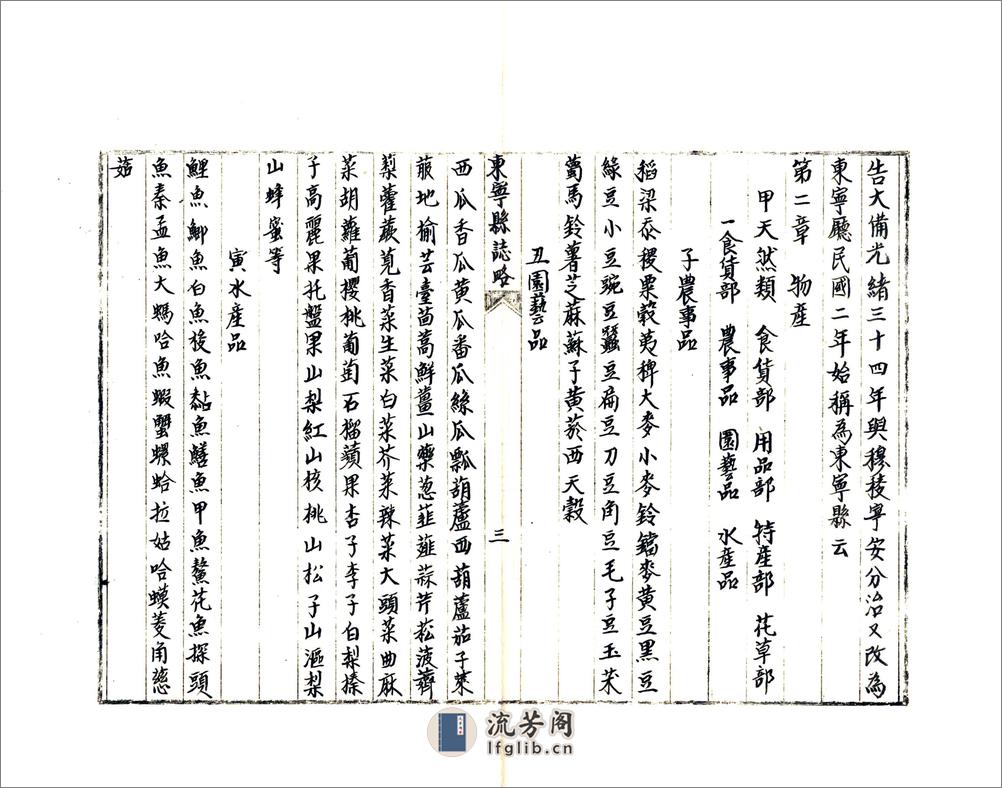 告大備光緒三十四年與穆稜寧安分治又改為
東寧廳民國二年始稱為東寧縣云
第二章　物產
甲天然類　食貨部　用品部　特產部　花草部
一食貨部　農事品　園藝品　水產品
子農事品
稻梁黍稷粟穀荑稗大麥小麥鈴鐺麥黃豆黑豆
綠豆小豆豌豆蠶豆扁豆刀豆角豆毛子豆玉米
蔔馬鈴薯芝蔴蘇子黃菸西天穀
丑園藝品
東寧縣誌略
三
西瓜香瓜黃瓜番瓜絲瓜瓢葫蘆西葫蘆茄子萊
菔地榆芸薹茴蒿鮮薑山藥葱韮薤蒜芹菘菠薺
藜藿蕨莧香菜生菜白菜芥菜辣菜大頭菜曲麻
菜胡蘿蔔櫻桃葡萄石榴蘋果杏子李子白梨榛
子高麗果托盤果山梨紅山核桃山松子山漚梨
山蜂蜜等
寅水產品
鯉魚鯽魚白魚梭魚黏魚鱔魚甲魚鰲花魚探頭
魚秦孟魚大螞哈魚蝦蟹螺蛤拉姑哈蟆菱角慈
菇
流芳阁
lfglib.cn